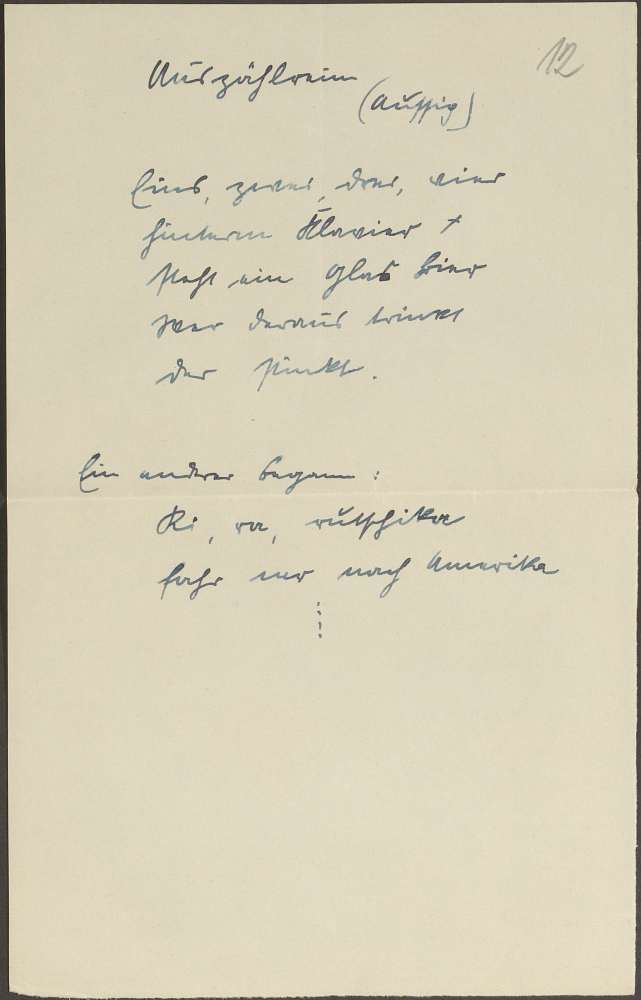 12
Auszählreim
(Aussig)
Eins, zwei, drei, vier
hinterm Klavier +
steht ein Glas Bier
wer daraus trinkt
der stinkt.
Ein anderer begann:
Ri, ra, rutschika
fahr mr nach Amerika